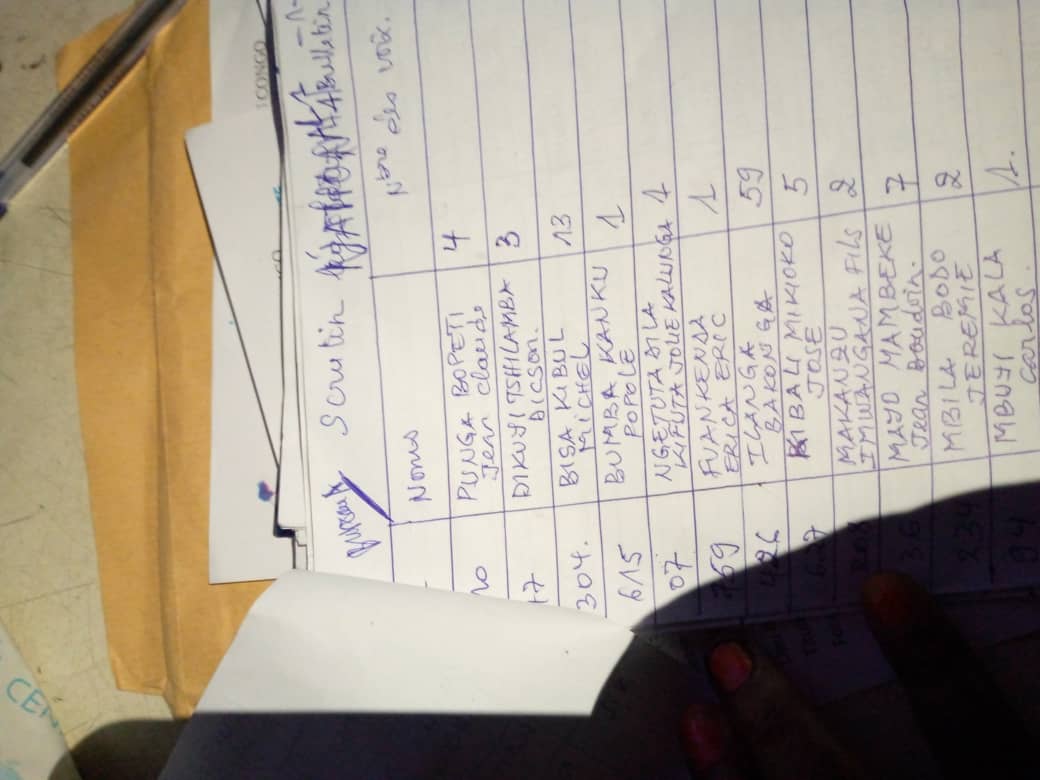 Scrutin
Bulletin
Noms Nbre des voix.
PUNGA BOPETI 4
Jean Claude
DIKUYI TSHILAMBA 3
DICSON.
304. BISA KIBUL 13
MICHEL
615 BUMBA KANKU 1
POPOLE
07 NGETUTA DILA
KUFUTA JOLIE KALUNGA 1
769 FUANKENDA 1
ERICA ERIC
426 ILANGA 59
BAKONGA
627 KIBALI MIKIOKO 5
JOSE
MAKANZU
IMWANGANA FILS 2
36 MAYO MAMBEKE 7
Jean Boudoin.
234 MBILA BODO 2
JEREMIE
94 MBUYI KALA 1.
Carlos.
ICONGO
CEN